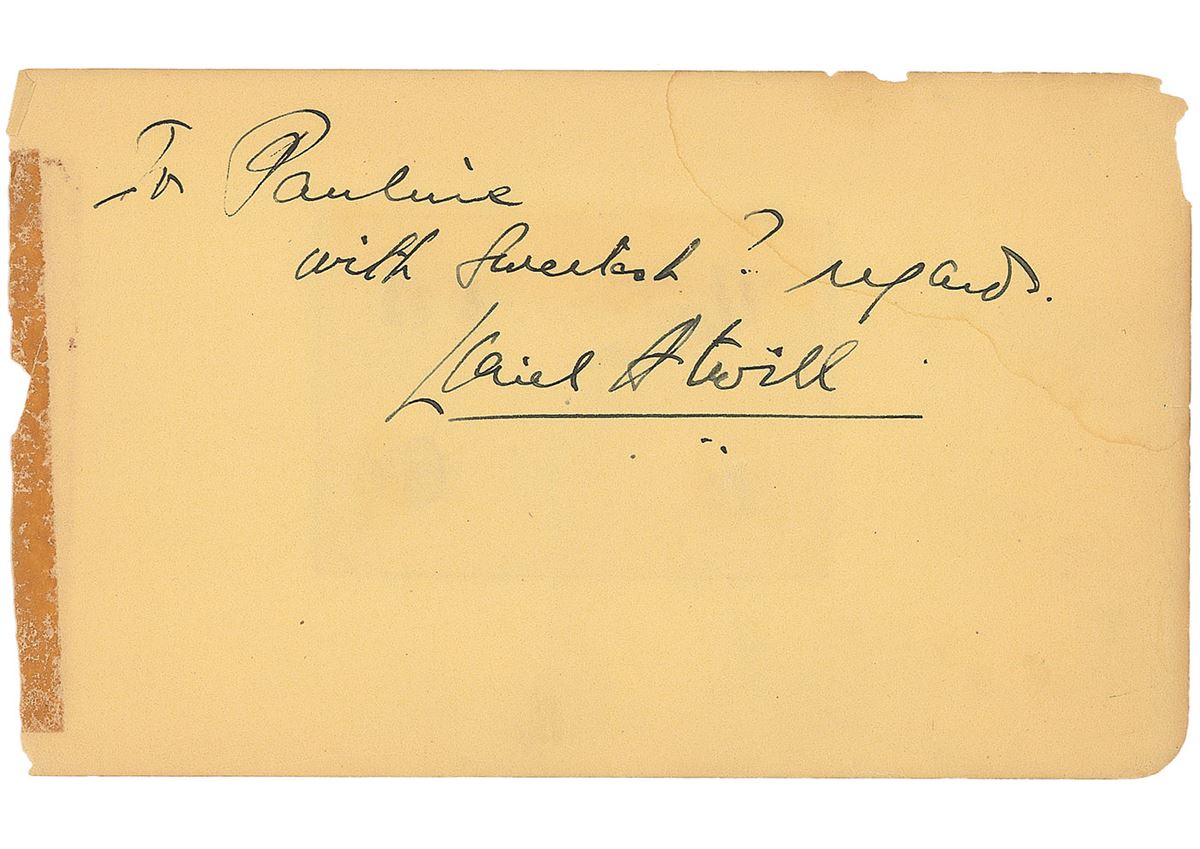 To Pauline
with Sweetest ? regards.
Lionel Atwill